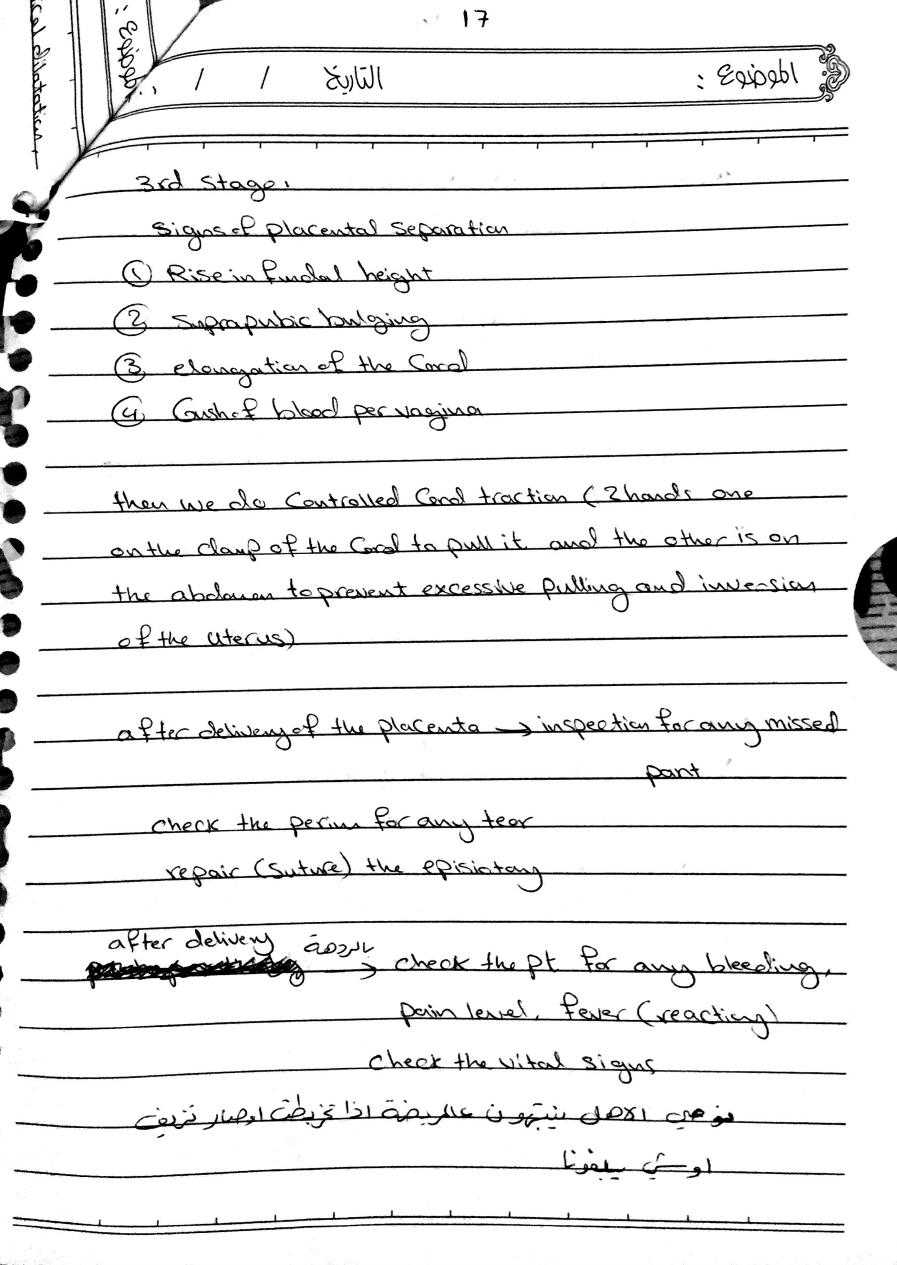 17
الموضوع : التاريخ / /
الموضوع :
ical dilatation
3rd stage:
signs of placental separation
① Rise in fundal height
② suprapubic bulging
③ elongation of the Cord
④ Gush of blood per vagina
then we do Controlled Cord traction ( 2 hands one
on the clamp of the Cord to pull it and the other is on
the abdomen to prevent excessive pulling and inversion
of the uterus)
after delivery of the placenta → inspection for any missed
part
check the perium for any tear
repair (suture) the episiotomy
after delivery بالردهة
→ check the pt for any bleeding,
pain level, fever (reaction)
check the vital signs
نوصي الاهل ينتبهون عالمريضة اذا خربطت او صار نزيف
او شي يبلغونا